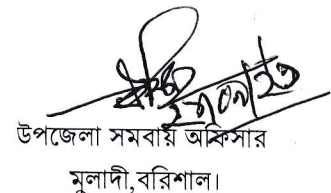 উপজেলা সমবায় অফিসার
মুলাদী,বরিশাল।